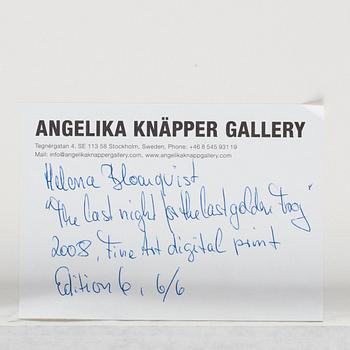 ANGELIKA KNÄPPER GALLERY
Tegnérgatan 4, SE 113 58 Stockholm, Sweden, Phone: +46 8 545 931 19
Mail: info@angelikaknappergallery.com, www.angelikaknappgallery.com
Helena Blomqvist
"The last night for the last golden frog"
2008, Fine Art digital print
Edition 6, 6/6